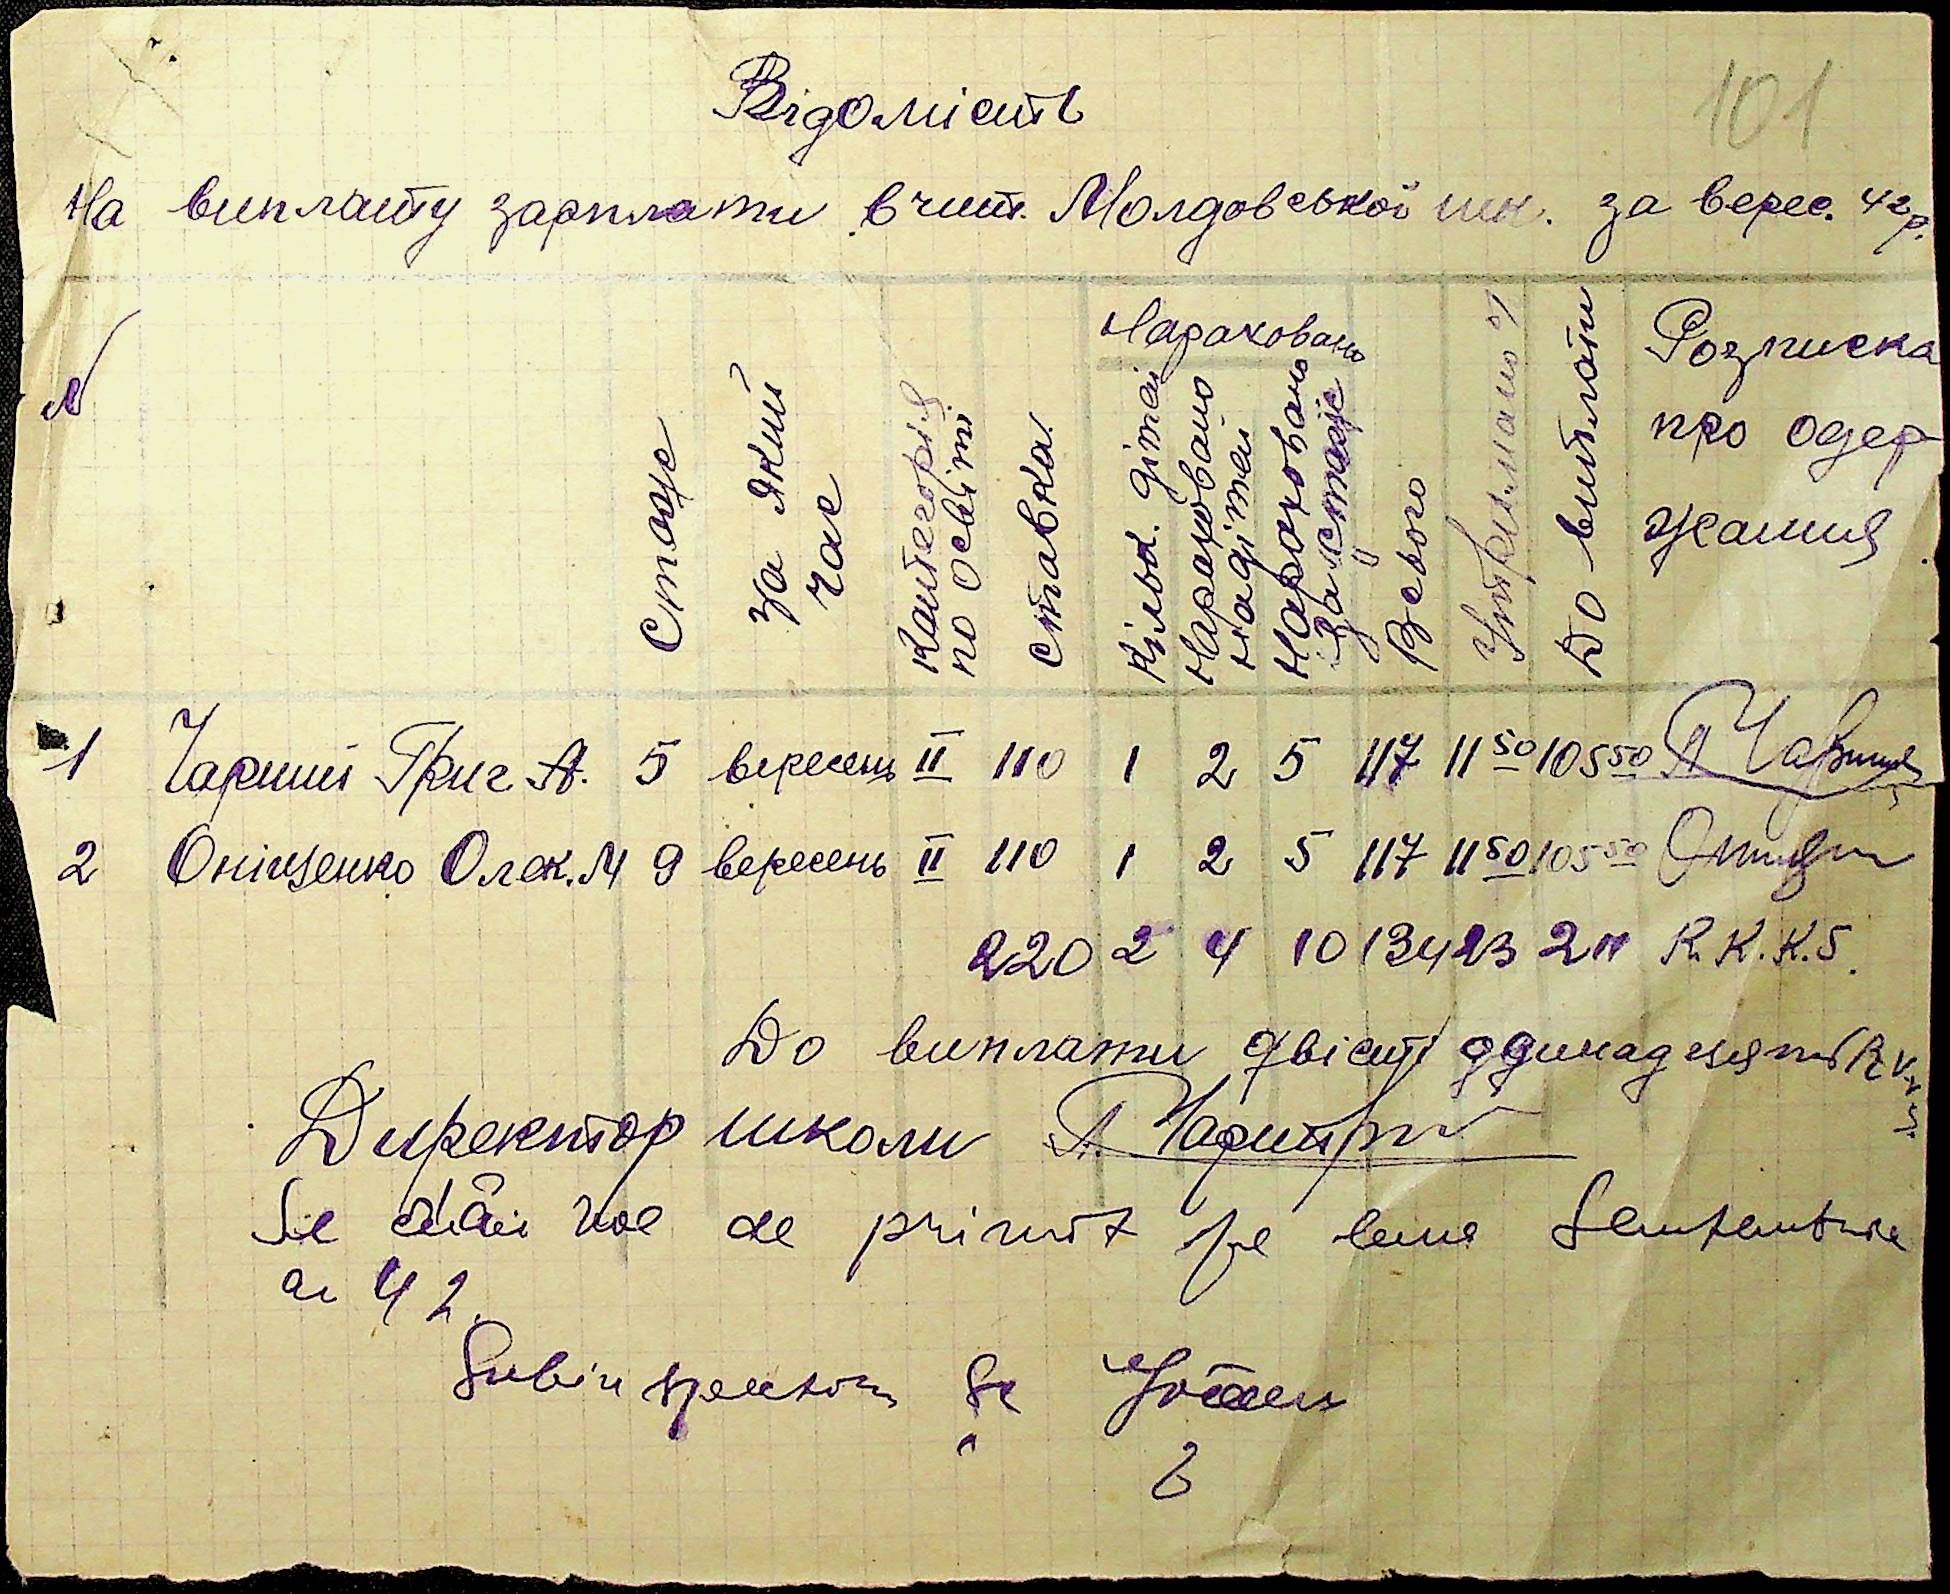 101
Відомість
На виплату зарплати вчит. Молдовської шк. за верес. 42 р.
№ Стаж За який час Категорія по освіті ставка Нараховано Кільк. дітей Нараховано на дітей Нараховано за стаж Всього Утримано % До виплати Розписка про одержання
1 Чарний Григ А. 5 вересень II 110 1 2 5 117 11 50 105 50
2 Оніщенко Олек. М 9 вересень II 110 1 2 5 117 11 50 105 50
220 2 4 10 134 23 211 R. K. K. S.
До виплати двісті одинадцять R. K. K. S.
Директор школи
de primit pe
a 42.
Subinspector